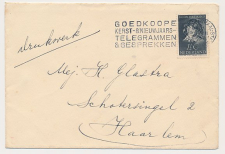 GOEDKOOPE
KERST- & NIEUWJAARS-
TELEGRAMMEN
& GESPREKKEN
drukwerk
Mej. H. Glastra
Schotersingel 2
Haarlem